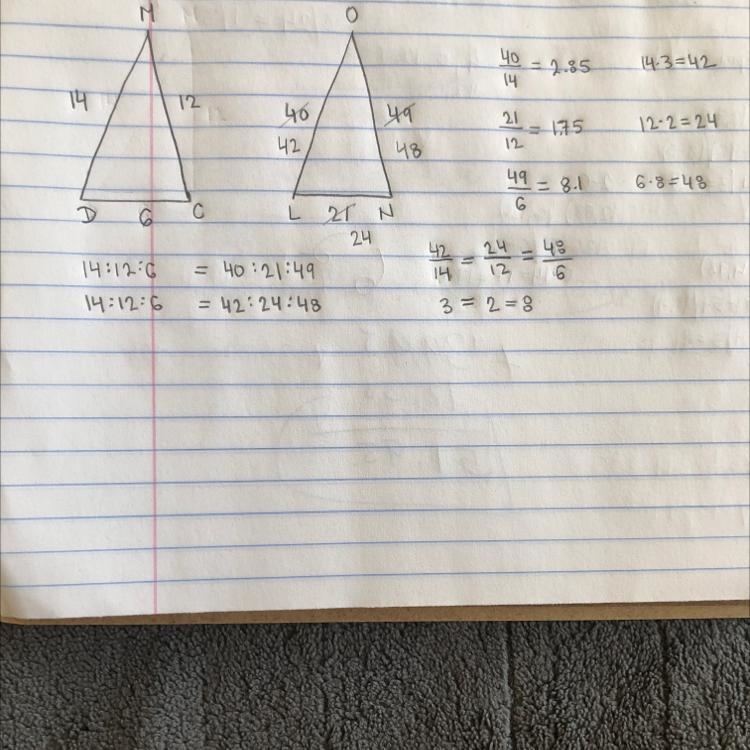 M
O
14
12
40
49
42
48
D
6
C
L
21
N
24
40/14 = 2.85
14·3=42
21/12 = 1.75
12·2=24
49/6 = 8.1
6·8=48
14:12:6 = 40:21:49
14:12:6 = 42:24:48
42/14 = 24/12 = 48/6
3 = 2 = 8